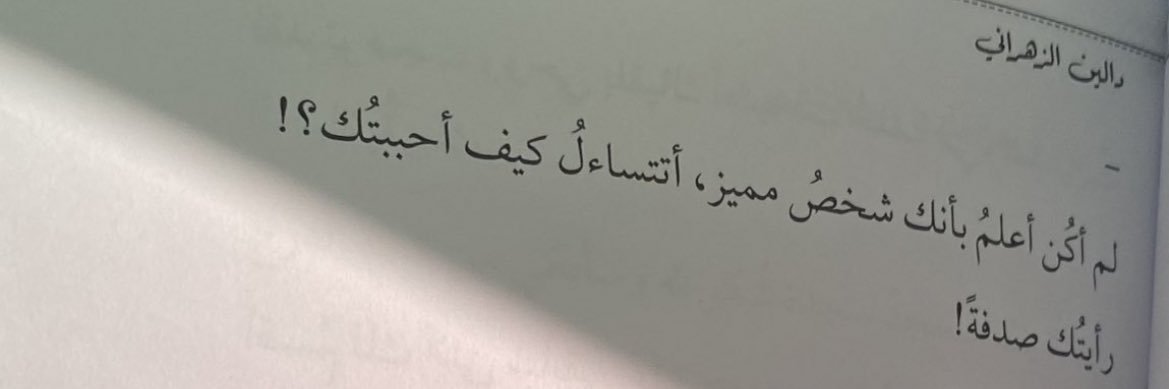 دالين الزهراني
-
لم أكُن أعلمُ بأنك شخصُ مميز، أتتساءلُ كيف أحببتُك؟!
رأيتُك صدفةً!